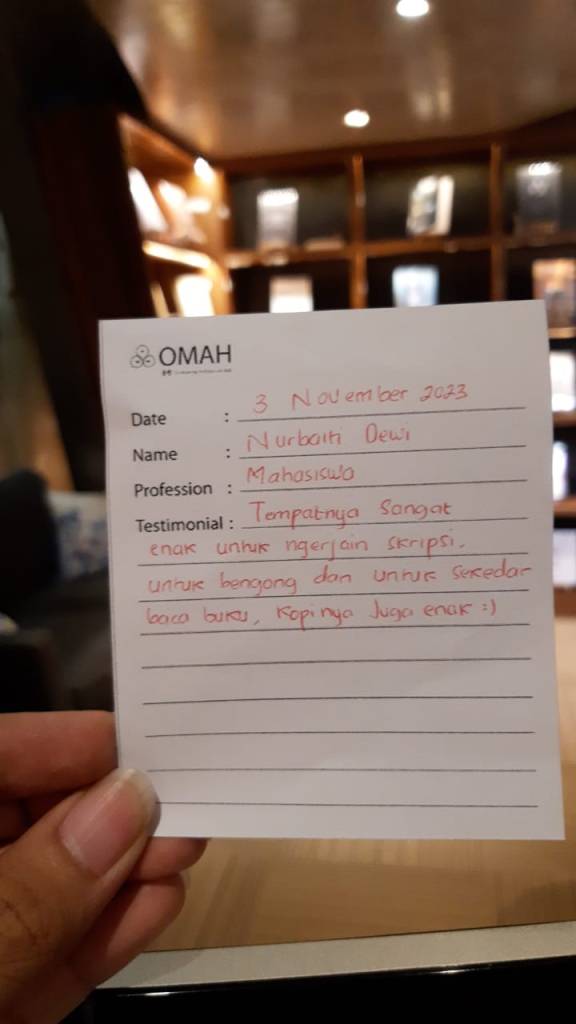 OMAH
Date : 3 November 2023
Name : Nurbaiti Dewi
Profession : Mahasiswa
Testimonial : Tempatnya sangat
enak untuk ngerjain skripsi.
untuk bengong dan untuk sekedar
baca buku, kopinya juga enak :)